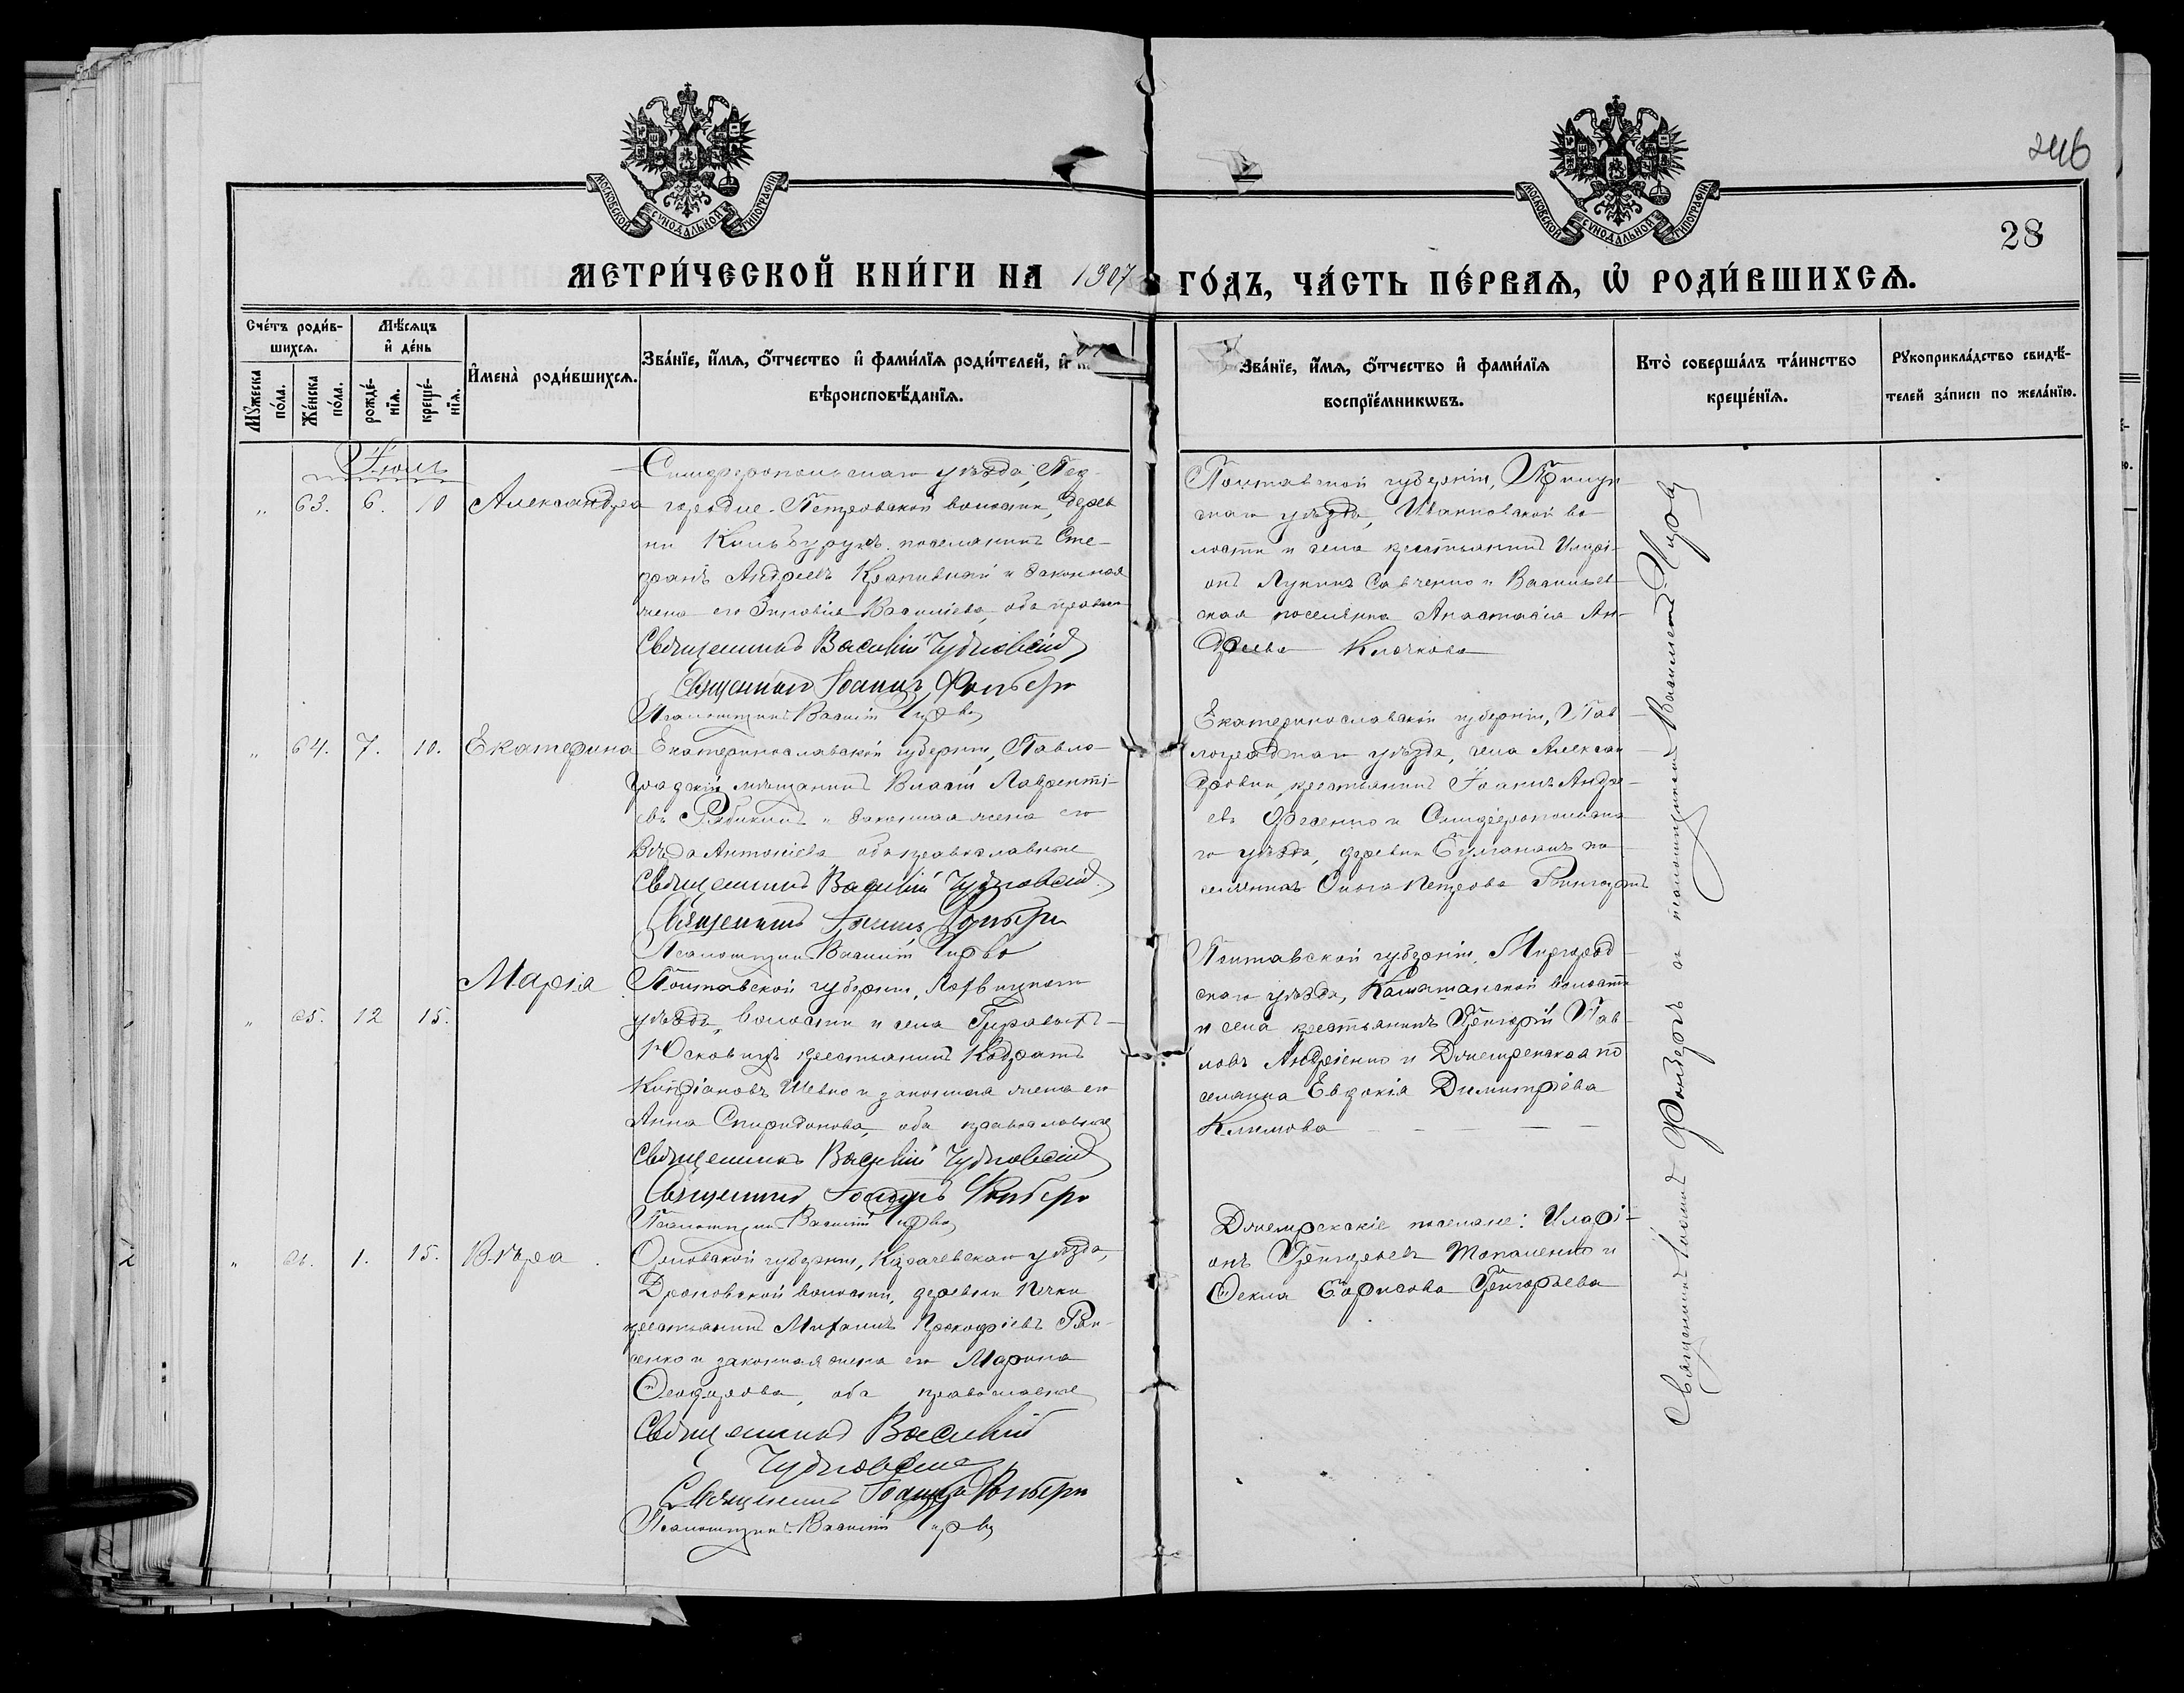 246
28
МОСКОВСКОЙ СѴНОДАЛЬНОЙ ТИПОГРАФІИ
МОСКОВСКОЙ СѴНОДАЛЬНОЙ ТИПОГРАФІИ
МЕТРИ́ЧЕСКОЙ КНИ́ГИ НА 1907 ГО́ДЪ, ЧА́СТЬ ПЕ́РВАѦ, Ѡ҆ РОДИ́ВШИХСѦ.
Сче́тъ роди́в-
шихсѧ.
Мѣ́сѧцъ
и҆ де́нь
Мꙋ́жеска
по́ла.
Же́нска
по́ла.
рожде́-
нїѧ.
креще́-
нїѧ.
И҆мена̀ роди́вшихсѧ.
Зва́нїе, и҆́мѧ, ѻ҆́тчество и҆ фами́лїѧ роди́телей, и҆
вѣроисповѣ́данїѧ.
Зва́нїе, и҆́мѧ, ѻ҆́тчество и҆ фами́лїѧ
воспрїе́мникѡвъ.
Кто̀ соверша́лъ та́инство
креще́нїѧ.
Рꙋкоприкла́дство свидѣ́-
телей за́писи по жела́нїю.
Іюль
„ 63. 6. 10 Александра
Симферопольскаго уѣзда, Под-
городне-Петровской волости, дерев
ни Кильбурунъ поселянинъ Сте-
фанъ Андреевъ Крапивный и законная
жена его Зиновія Василіева, оба правосл
Священникъ Василій Чудновскій
Священникъ Іоаннъ Фонберг
Псаломщикъ Василій Чирва
Полтавской губерніи, Прилук
скаго уѣзда, Иванковской во
лости и села крестьянинъ Иларі-
онъ Лукинъ Савченко и Васильев
ская поселянка Анастасія Ан-
дреева Клочкова
„ 64. 7. 10. Екатерина
Екатеринославской губерніи, Павло-
градскій мѣщанинъ Власій Лавренті-
евъ Рябикинъ и законная жена его
Вѣра Антоніева оба православные
Священникъ Василій Чудновскій
Священникъ Іоаннъ Фонберг
Псаломщикъ Василій Чирва
Екатеринославской губерніи, Пав-
лоградскаго уѣзда, села Алексан
дровки, крестьянинъ Іоаннъ Андре-
евъ и Симферопольска
го уѣзда, деревни Булганакъ по
селянка Ольга Петрова
„ 65. 12 15. Марія
Полтавской губерніи, Лохвицкаго
уѣзда, волости и села
Юсковицъ крестьянинъ Кодратъ
Кипріановъ Шевко и законная жена его
Анна Спиридонова, оба православные
Священникъ Василій Чудновскій
Священникъ Іоаннъ Фонберг
Псаломщикъ Василій Чирва
Полтавской губерніи, Миргород-
скаго уѣзда, волости
и села крестьянинъ Григорій Пав-
ловъ Андріенко и Джемрекская по
селянка Евдокія Димитріева
Климова
„ 66. 1. 15. Вѣра
Орловской губерніи, Карачевскаго уѣзда,
Дроновской волости, деревни Печки
крестьянинъ Михаилъ Прокофіевъ
сенко и законная жена его Марина
Ѳеодорова, оба православные
Священникъ Василій
Чудновскій
Священникъ Іоаннъ Фонберг
Псаломщикъ Василій Чирва
Джемрекскіе поселяне: Иларі-
онъ Григорьевъ Топаленко и
Ѳекла Борисова Григорьева
Священникъ Іоаннъ Фонбергъ съ псаломщикомъ Василіемъ Чирвой